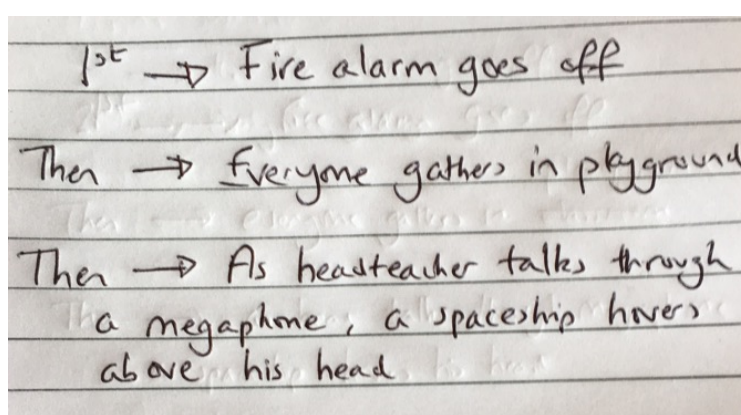 1st → Fire alarm goes off
Then → Everyone gathers in playground
Then → As headteacher talks through
a megaphone, a spaceship hovers
above his head